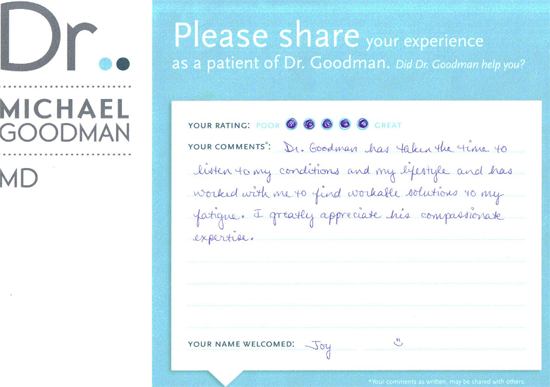 Dr.
MICHAEL
GOODMAN
MD
Please share your experience
as a patient of Dr. Goodman. Did Dr. Goodman help you?
YOUR RATING: POOR GREAT
YOUR COMMENTS*: Dr. Goodman has taken the time to
listen to my conditions and my lifestyle and has
worked with me to find workable solutions to my
fatigue. I greatly appreciate his compassionate
expertise.
YOUR NAME WELCOMED: Joy
*Your comments as written, may be shared with others.